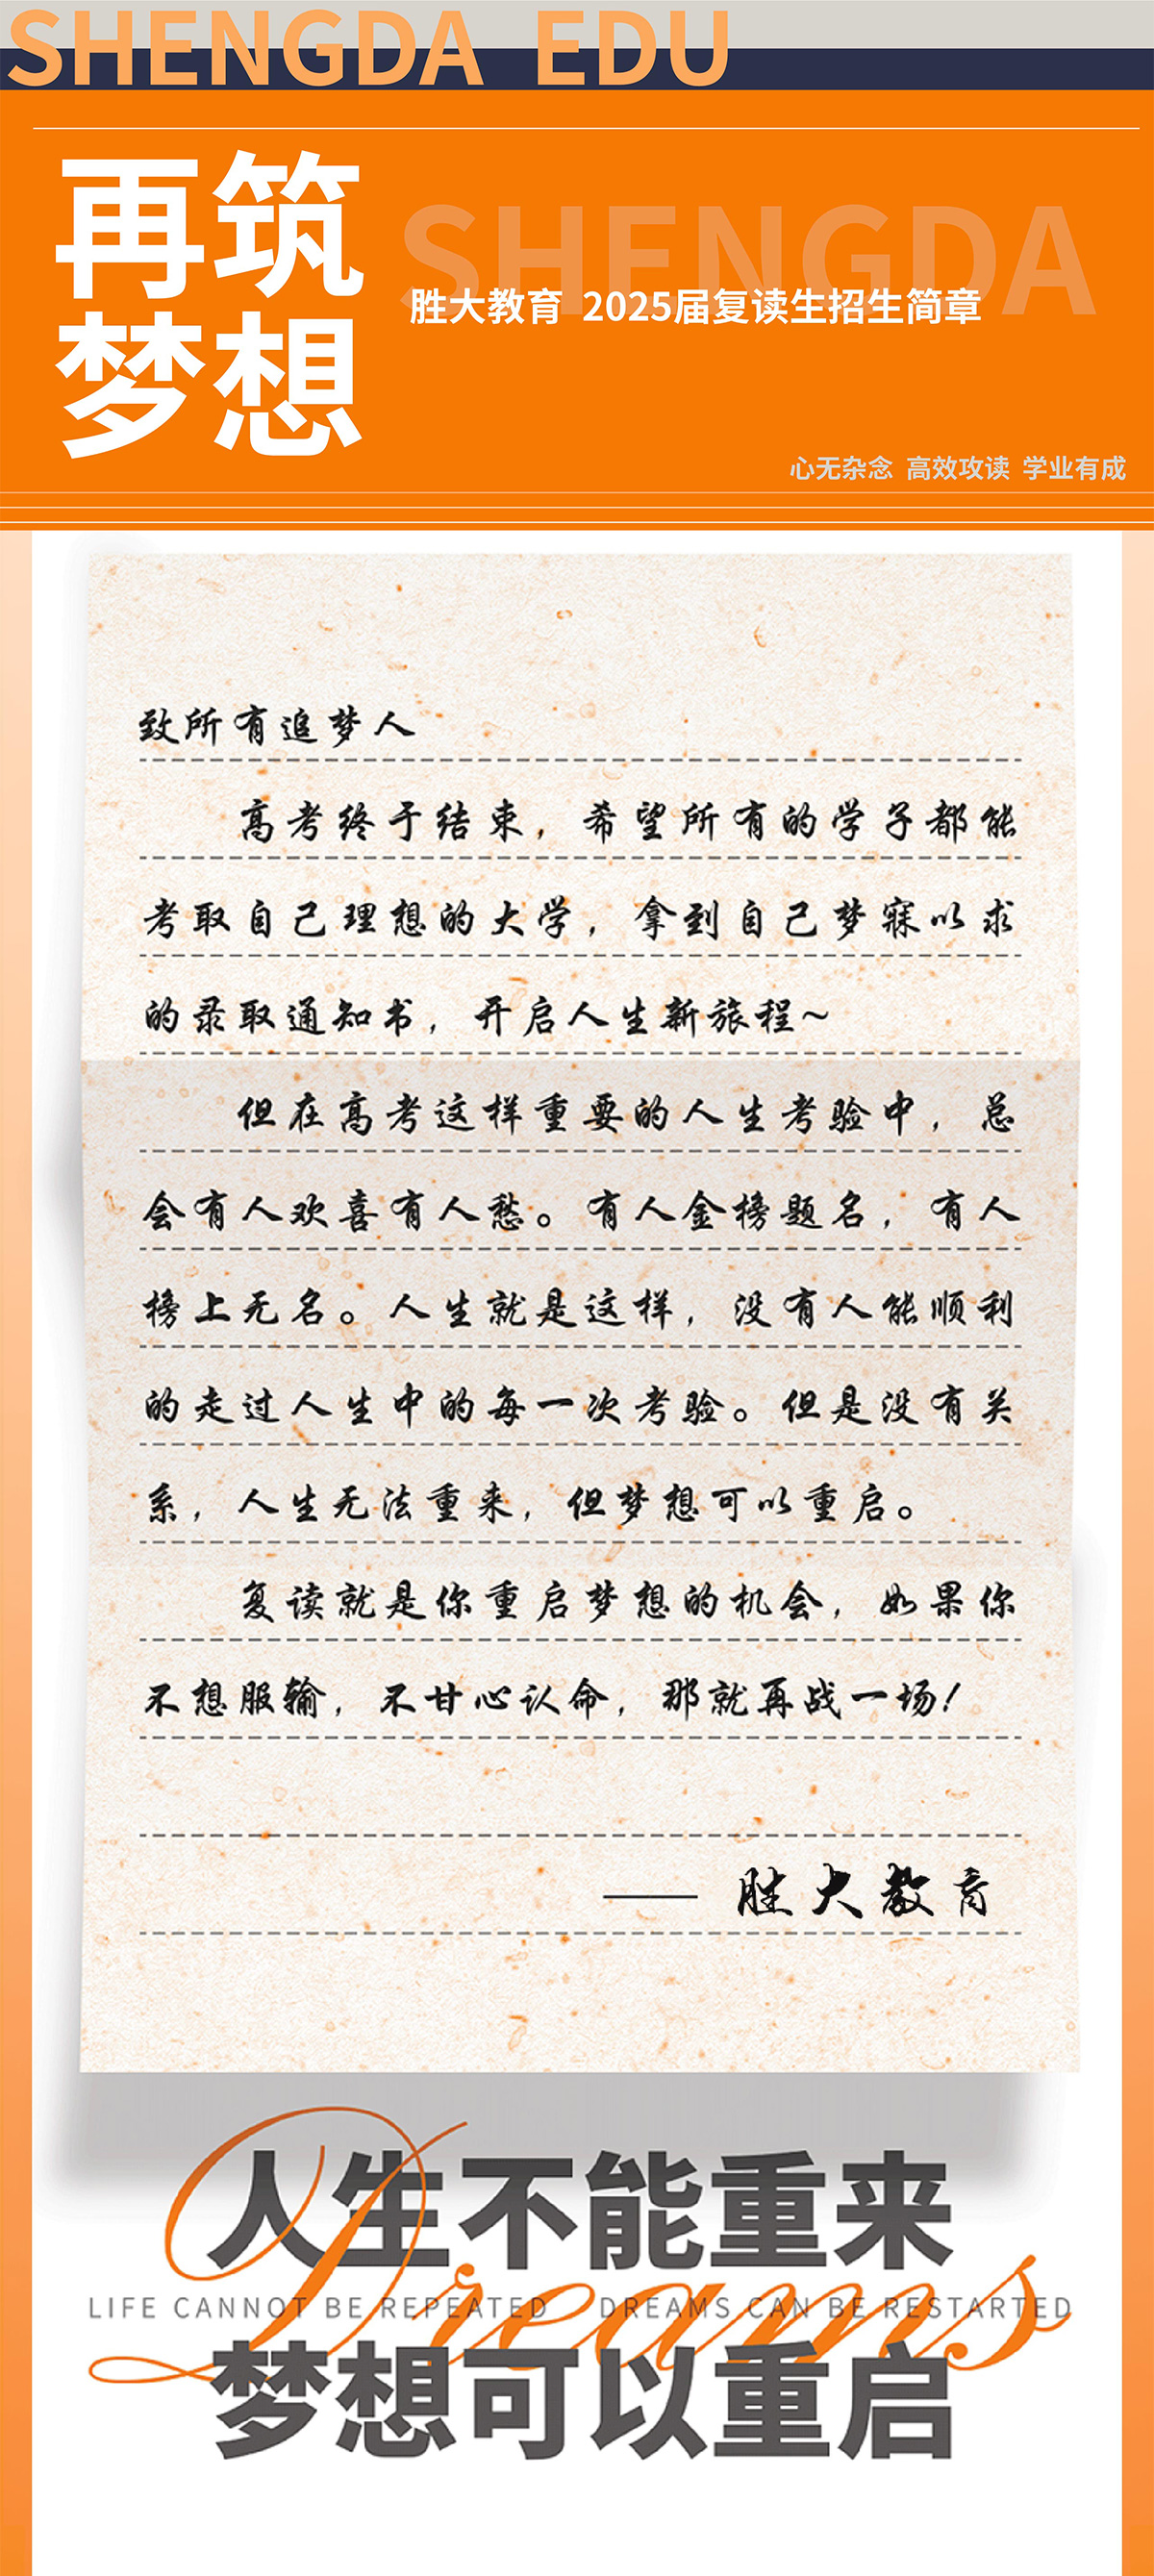 SHENGDA EDU
再筑
梦想
SHENGDA
胜大教育 2025届复读生招生简章
心无杂念 高效攻读 学业有成
致所有追梦人
高考终于结束，希望所有的学子都能
考取自己理想的大学，拿到自己梦寐以求
的录取通知书，开启人生新旅程~
但在高考这样重要的人生考验中，总
会有人欢喜有人愁。有人金榜题名，有人
榜上无名。人生就是这样，没有人能顺利
的走过人生中的每一次考验。但是没有关
系，人生无法重来，但梦想可以重启。
复读就是你重启梦想的机会，如果你
不想服输，不甘心认命，那就再战一场！
—— 胜大教育
人生不能重来
Dreams
LIFE CANNOT BE REPEATED DREAMS CAN BE RESTARTED
梦想可以重启